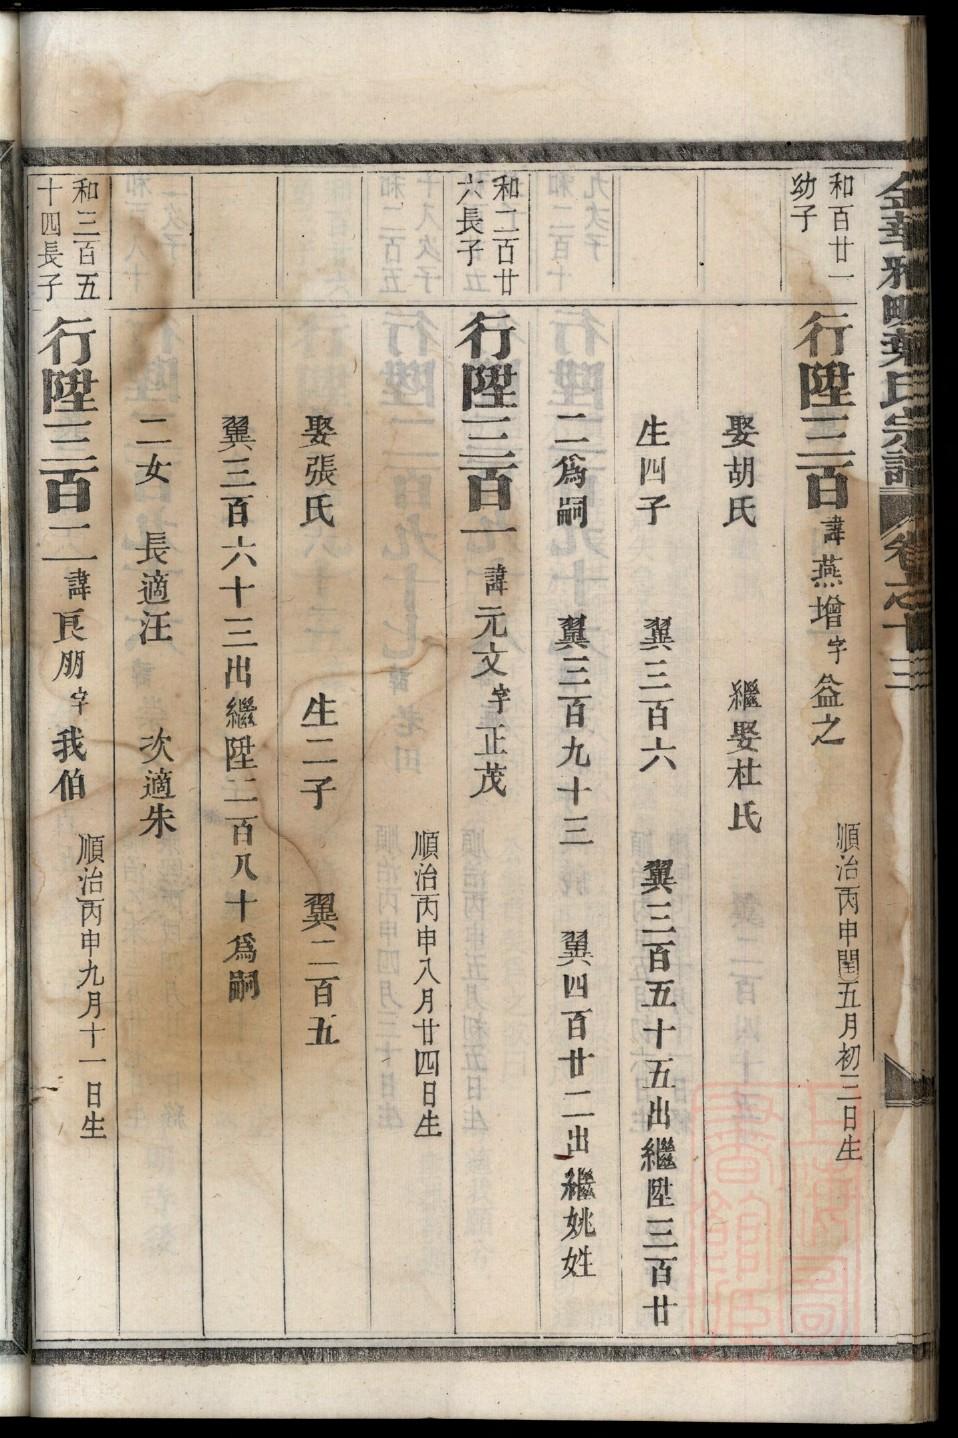 金華雅畈葉氏宗譜 卷之十三
和百廿一
幼子
行陞三百 諱燕增字益之 順治丙申閏五月初三日生
娶胡氏 繼娶杜氏
生四子 翼三百六 翼三百五十五出繼陞三百廿
二為嗣 翼三百九十三 翼四百廿二出繼姚姓
和二百廿
六長子
行陞三百一 諱元文字正茂 順治丙申八月廿四日生
娶張氏 生二子 翼二百五
翼三百六十三出繼陞二百八十為嗣
二女 長適汪 次適朱
和三百五
十四長子
行陞三百二 諱良朋字我伯 順治丙申九月十一日生